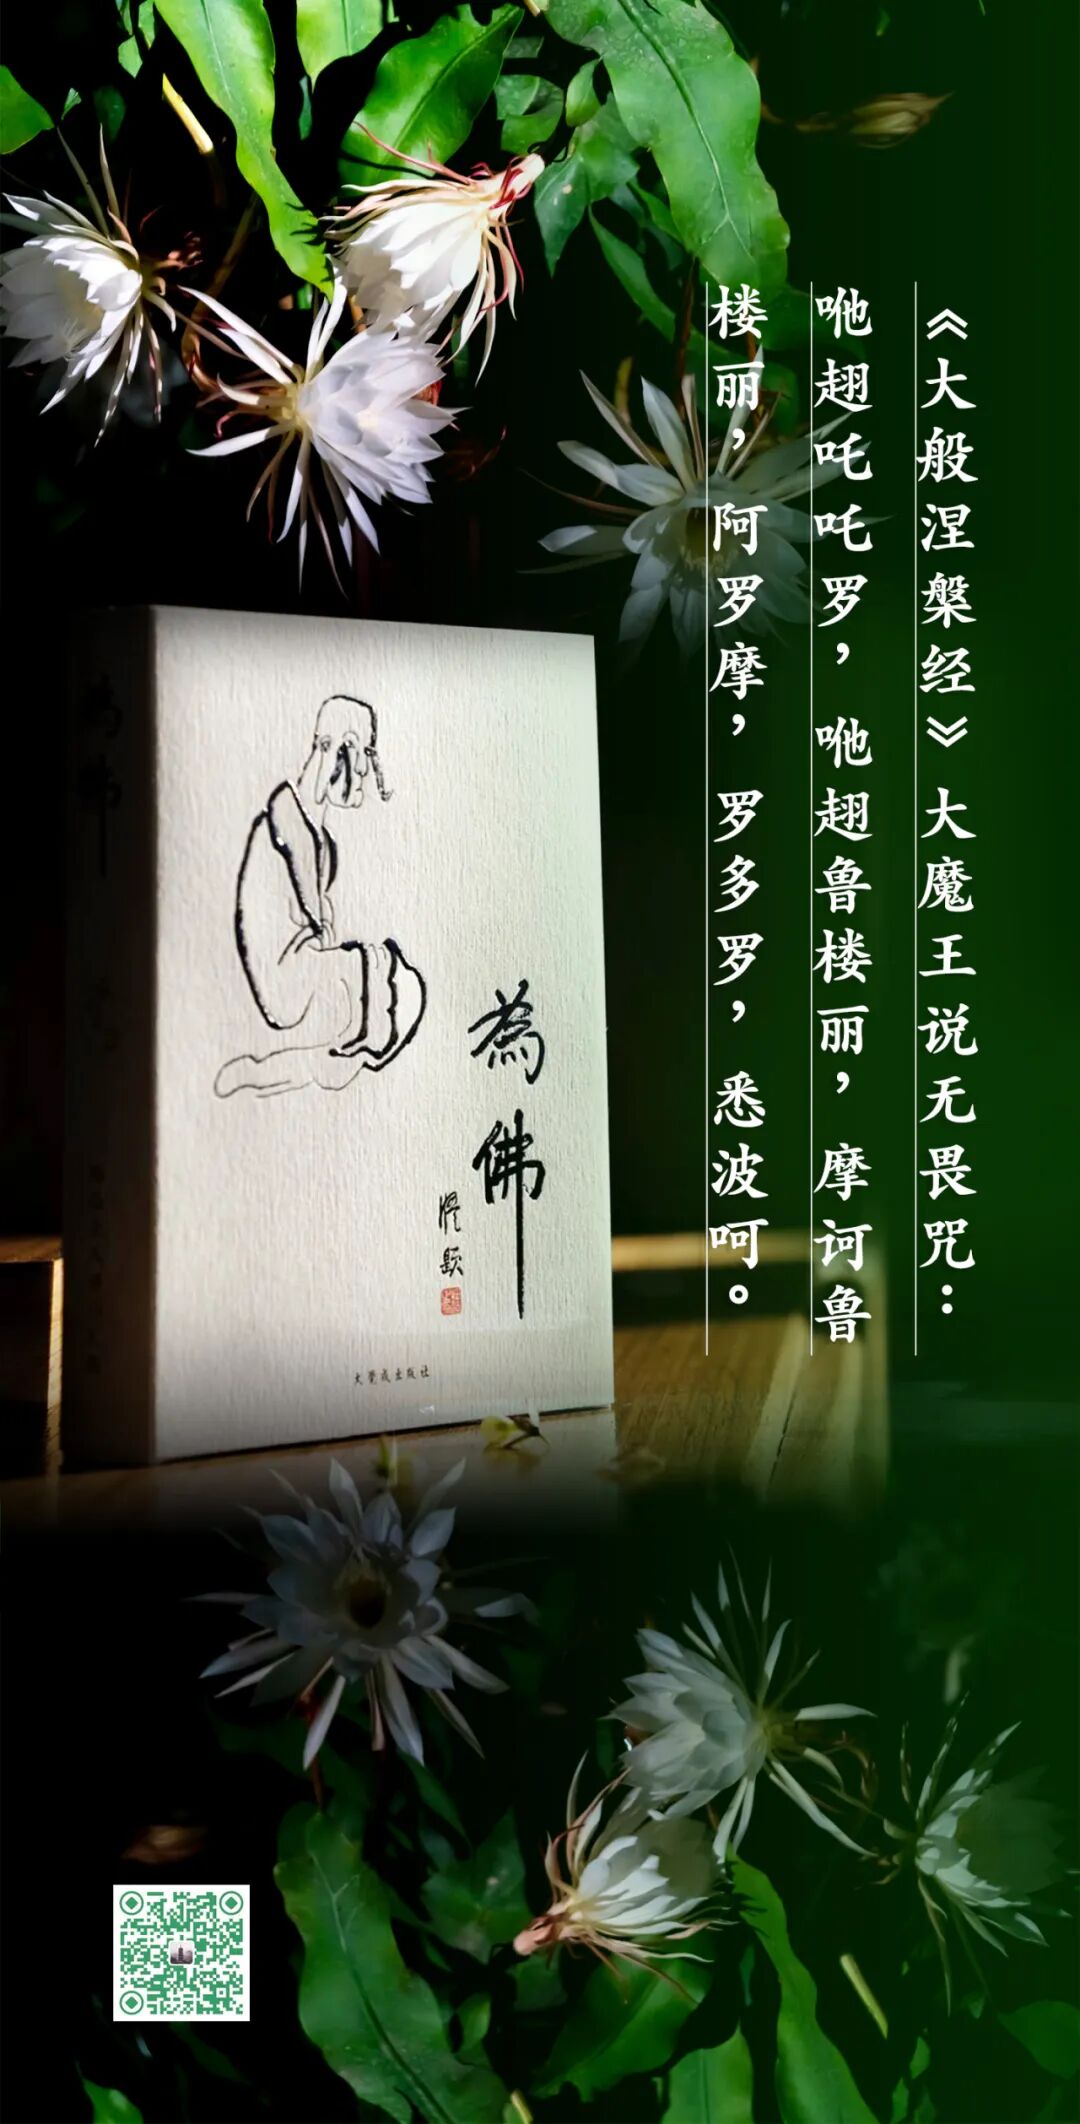 《大般涅槃经》大魔王说无畏咒：
吔趐吒吒罗，吔趐鲁楼丽，摩诃鲁
楼丽，阿罗摩，罗多罗，悉波呵。
為佛
题
大覺成出版社